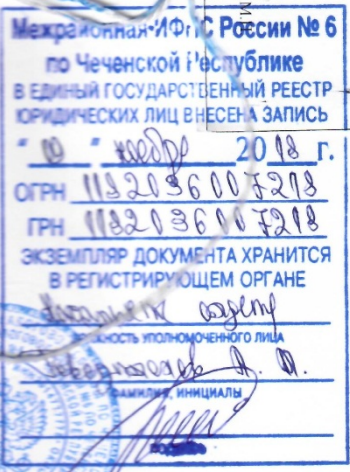 Межрайонная ИФНС России № 6
по Чеченской Республике
В ЕДИНЫЙ ГОСУДАРСТВЕННЫЙ РЕЕСТР
ЮРИДИЧЕСКИХ ЛИЦ ВНЕСЕНА ЗАПИСЬ
"10" ноября 2018 г.
ОГРН 1182036007218
ГРН 1182036007218
ЭКЗЕМПЛЯР ДОКУМЕНТА ХРАНИТСЯ
В РЕГИСТРИРУЮЩЕМ ОРГАНЕ
ДОЛЖНОСТЬ УПОЛНОМОЧЕННОГО ЛИЦА
ФАМИЛИЯ, ИНИЦИАЛЫ
подпись